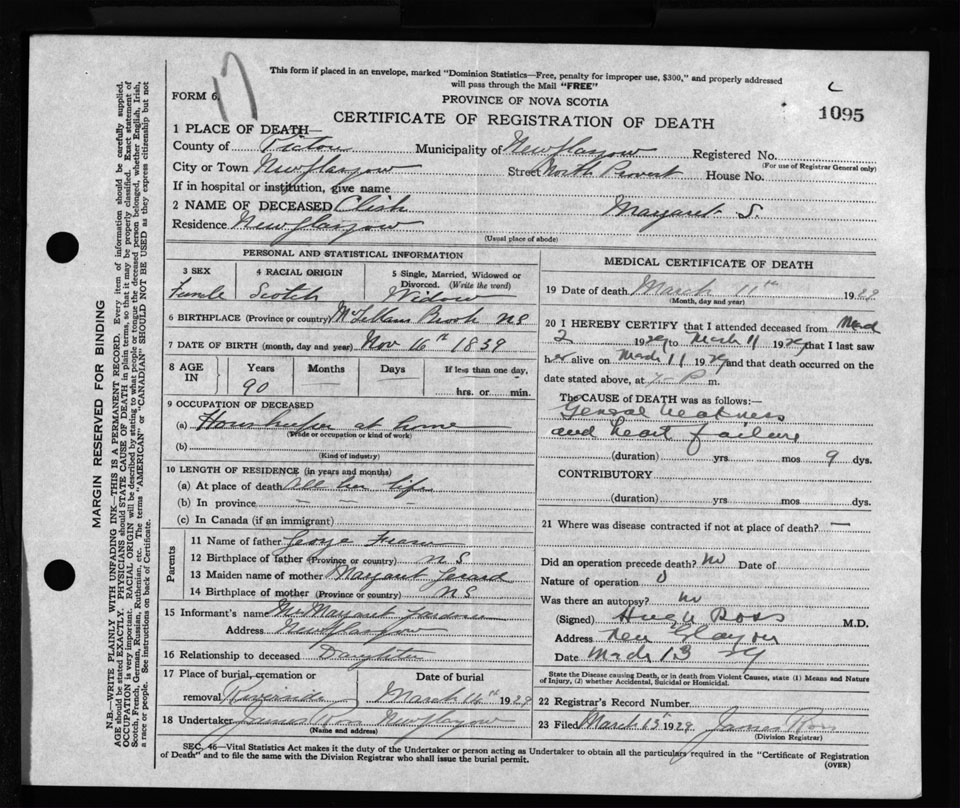 17
This form if placed in an envelope, marked "Dominion Statistics—Free, penalty for improper use, $300," and properly addressed
will pass through the Mail "FREE"
FORM 6.
PROVINCE OF NOVA SCOTIA
1095
CERTIFICATE OF REGISTRATION OF DEATH
1 PLACE OF DEATH—
County of Pictou Municipality of New Glasgow Registered No.
(For use of Registrar General only)
City or Town New Glasgow Street North Provost House No.
If in hospital or institution, give name
2 NAME OF DECEASED Clish Margaret S.
Residence New Glasgow
(Usual place of abode)
PERSONAL AND STATISTICAL INFORMATION
3 SEX 4 RACIAL ORIGIN 5 Single, Married, Widowed or Divorced. (Write the word)
Female Scotch Widow
6 BIRTHPLACE (Province or country) McLellans Brook NS
7 DATE OF BIRTH (month, day and year) Nov 16th 1839
8 AGE IN Years Months Days If less than one day,
90 — — hrs. or min.
9 OCCUPATION OF DECEASED
(a) Housekeeper at home
(Trade or occupation or kind of work)
(b)
(Kind of industry)
10 LENGTH OF RESIDENCE (in years and months)
(a) At place of death All her life
(b) In province — — —
(c) In Canada (if an immigrant)
Parents
11 Name of father George
12 Birthplace of father (Province or country) NS
13 Maiden name of mother Margaret
14 Birthplace of mother (Province or country) NS
15 Informant's name Mrs Margaret
Address New Glasgow
16 Relationship to deceased Daughter
17 Place of burial, cremation or removal Date of burial
Riverside March 14th 1929
18 Undertaker James Ross New Glasgow
(Name and address)
MEDICAL CERTIFICATE OF DEATH
19 Date of death March 11th 1929
(Month, day and year)
20 I HEREBY CERTIFY that I attended deceased from March
2 1929 to March 11 1929 that I last saw
her alive on March 11 1929 and that death occurred on the
date stated above, at P m.
The CAUSE of DEATH was as follows:—
General weakness
and heart failure
(duration) yrs mos 9 dys.
CONTRIBUTORY
(duration) yrs. mos. dys.
21 Where was disease contracted if not at place of death? —
Did an operation precede death? No Date of
Nature of operation 0
Was there an autopsy? No
(Signed) Hugh Ross M.D.
Address New Glasgow
Date March 13 29
State the Disease causing Death, or in death from Violent Causes, state (1) Means and Nature of Injury, (2) whether Accidental, Suicidal or Homicidal.
22 Registrar's Record Number
23 Filed March 15 1929 James Ross
(Division Registrar)
SEC. 46—Vital Statistics Act makes it the duty of the Undertaker or person acting as Undertaker to obtain all the particulars required in the "Certificate of Registration
of Death" and to file the same with the Division Registrar who shall issue the burial permit.
(OVER)
MARGIN RESERVED FOR BINDING
N.B.—WRITE PLAINLY WITH UNFADING INK—THIS IS A PERMANENT RECORD. Every item of information should be carefully supplied.
AGE should be stated EXACTLY. PHYSICIANS should STATE CAUSE OF DEATH in plain terms, so that it may be properly classified. Exact statement of
OCCUPATION is very important. RACIAL ORIGIN will be described by stating to what people or tongue the deceased person belonged, whether English, Irish,
Scotch, French, German, Russian, Ruthenian, etc. The terms "AMERICAN" or "CANADIAN" SHOULD NOT BE USED as they express citizenship but not
a race or people. See instructions on back of Certificate.